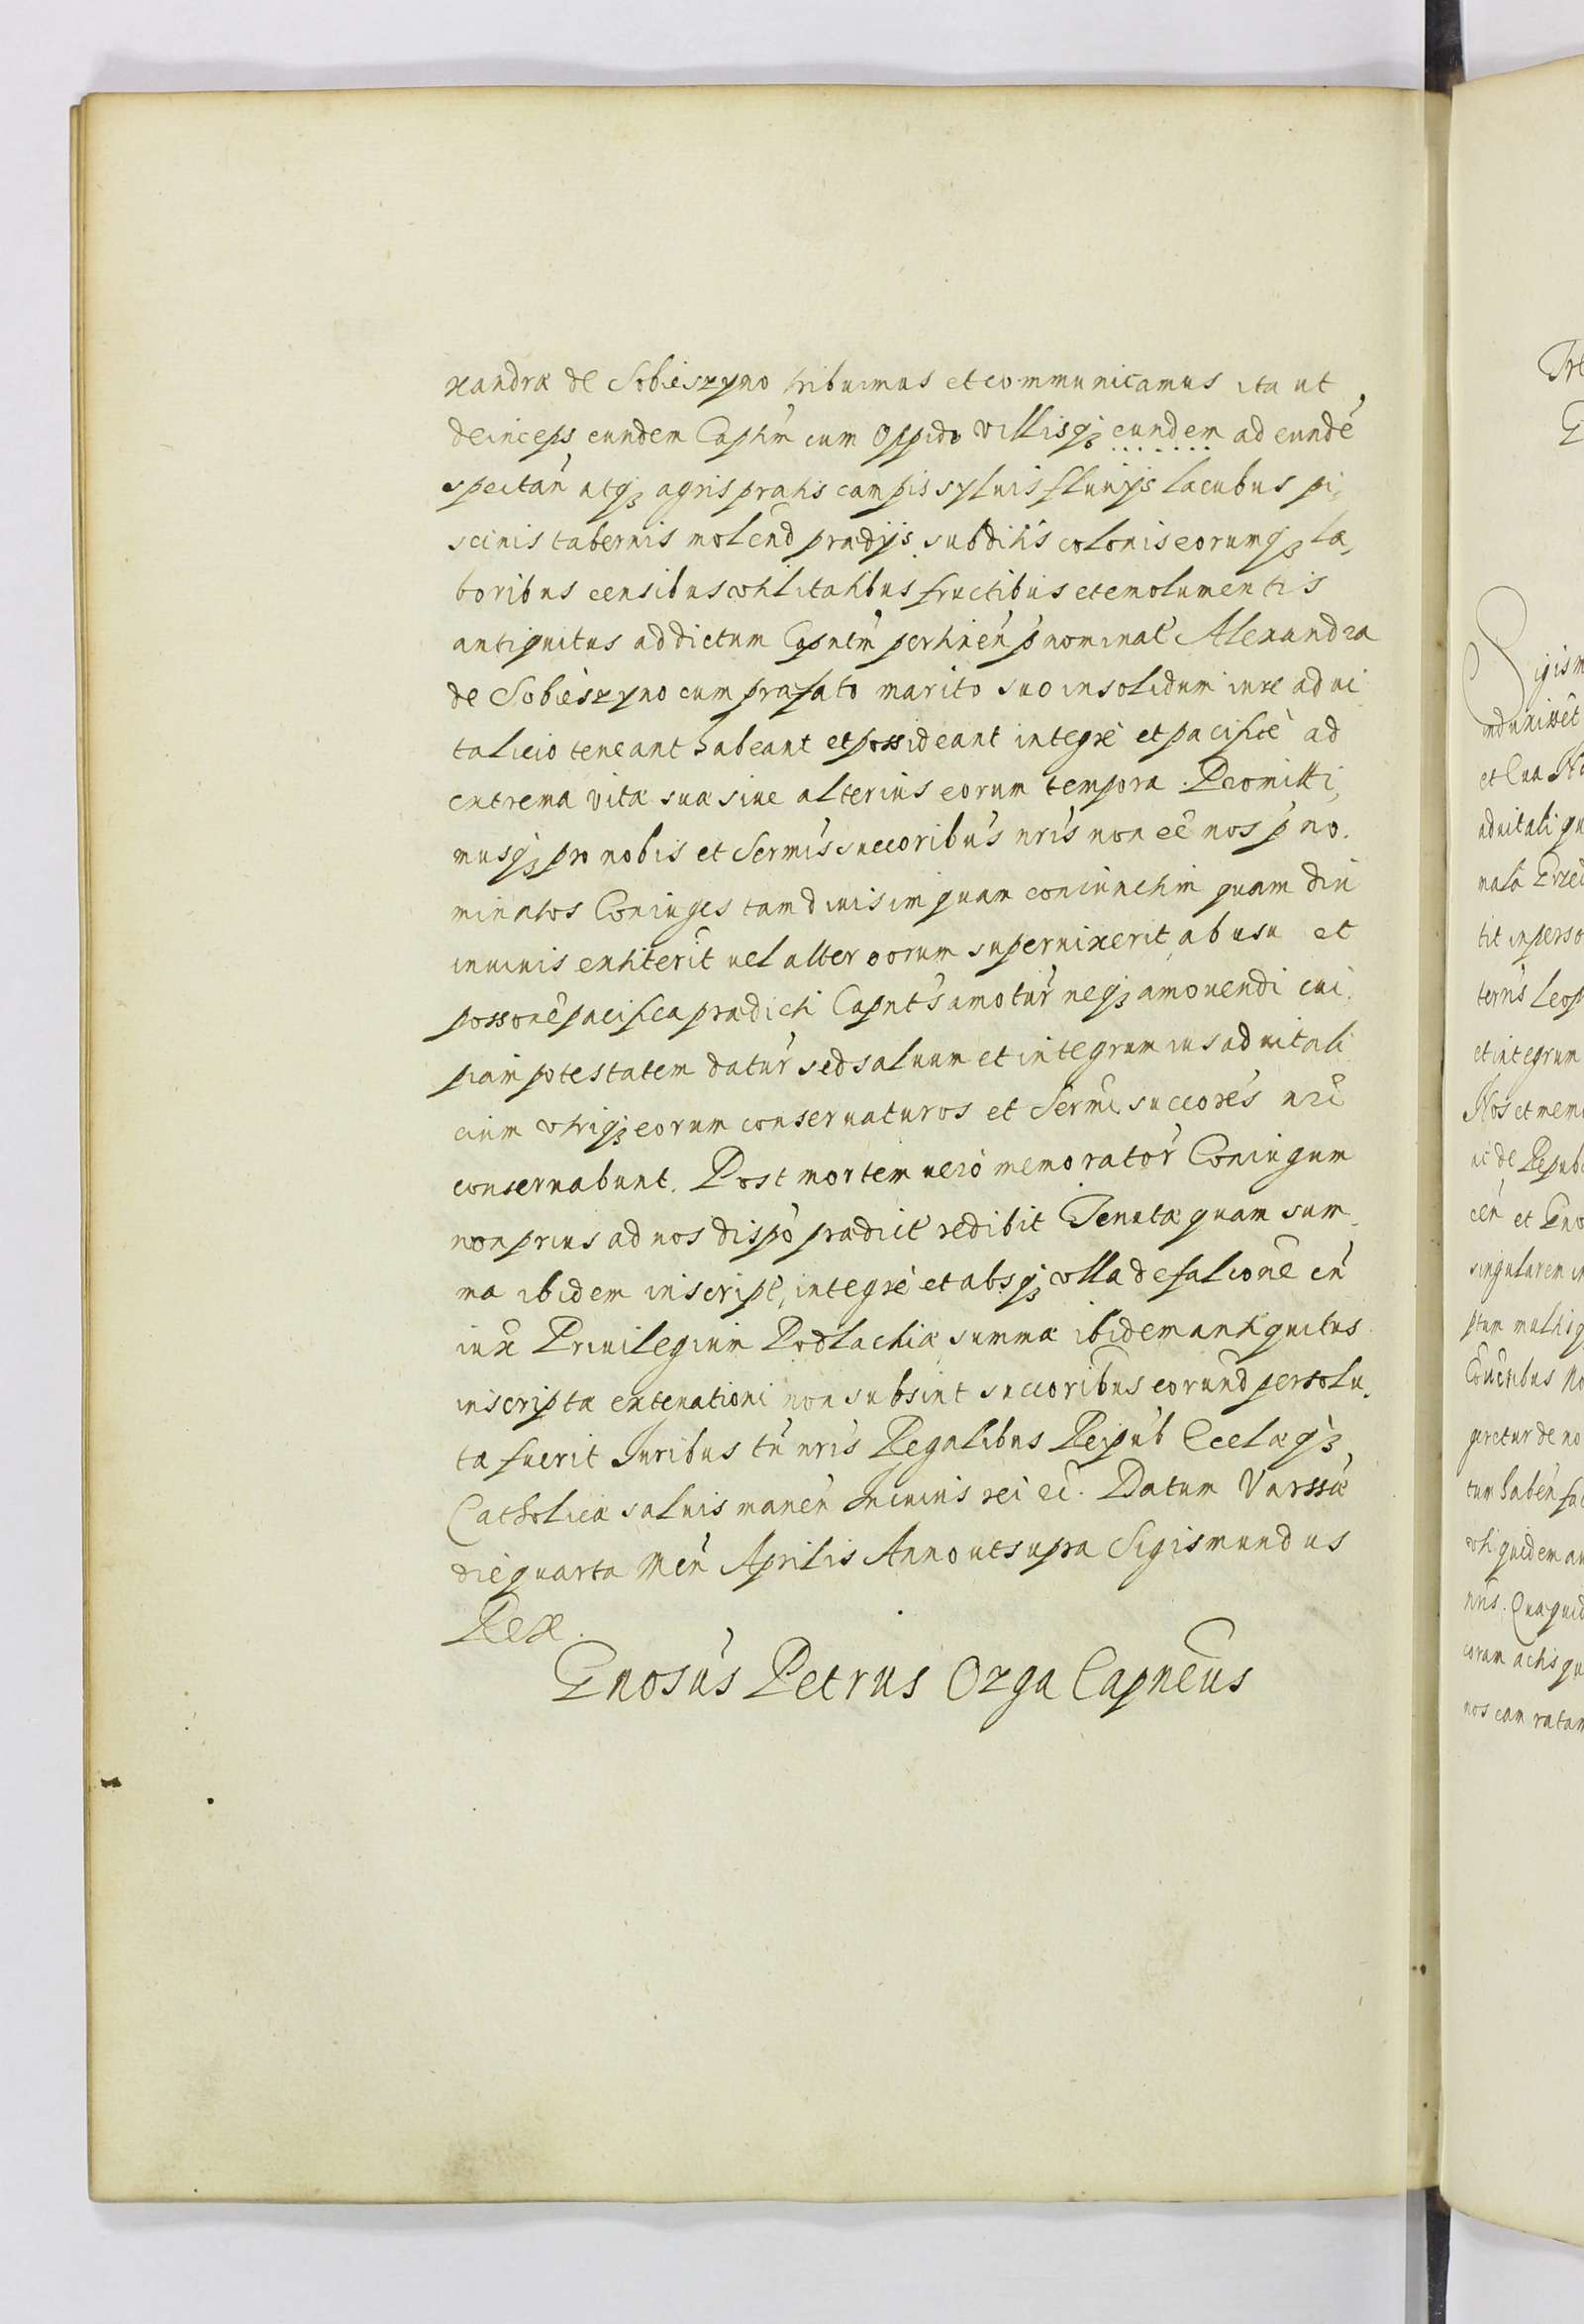 xandræ de Sobieszyno tribuimus et communicamus ita ut
deinceps eundem Captm̃ cum Oppido Villisq̃ eundem ad eundẽ
spectañ atq̃ agris pratis campis syluis fluuijs lacubus pi,
scinis tabernis molend prædijs subditis colonis eorumq̃ la,
boribus censibus vtilitatibus fructibus et emolumentis
antiquitus addictum Capntm̃ pertineñ p̃nominat̃ Alexandra
de Sobieszyno cum præfato marito suo insolidum iure adui
talicio teneant habeant et possideant integrè et pacificè ad
extrema vitæ suæ siue alterius eorum tempora. Promitti,
musq̃ pro nobis et Sermis succoribus nris non eẽ nos p̃no.
minatos Coniuges tam diuisim quam coniunctim quam diu
inuiuis extiterit uel alter eorum superuixerit, ab usu et
possonẽ pacifica prædicti Capnts̃ amotur̃ neq̃ amouendi cui,
piam potestatem datur̃ sed saluum et integrum ius aduitali
cium vtriq̃ eorum conseruaturos et Sermi succores nri
conseruabunt. Post mortem uerò memorator̃ Coniugum
non prius ad nos dispõ prædict̃ redibit Tenutæ quam sum,
ma ibidem inscript̃, integrè et absq̃ vlla defalcione cũ
iux̃ Priuilegium Podlachiæ summæ ibidem antiquitus
inscriptæ extenationi non subsint succoribus eorund persolu,
ta fuerit Iuribus tñ nris Regalibus Reipub̃ Ecclæq̃,
Catholicæ saluis maneñ Incuius rei ec̃. Datum Varssæ
die quarta Meñ Aprilis Anno ut supra Sigismundus
Rex.
Gnosus Petrus Ozga Capneus
Sigism
et integrum
Nos et mem
singularem in
nos eam ratam